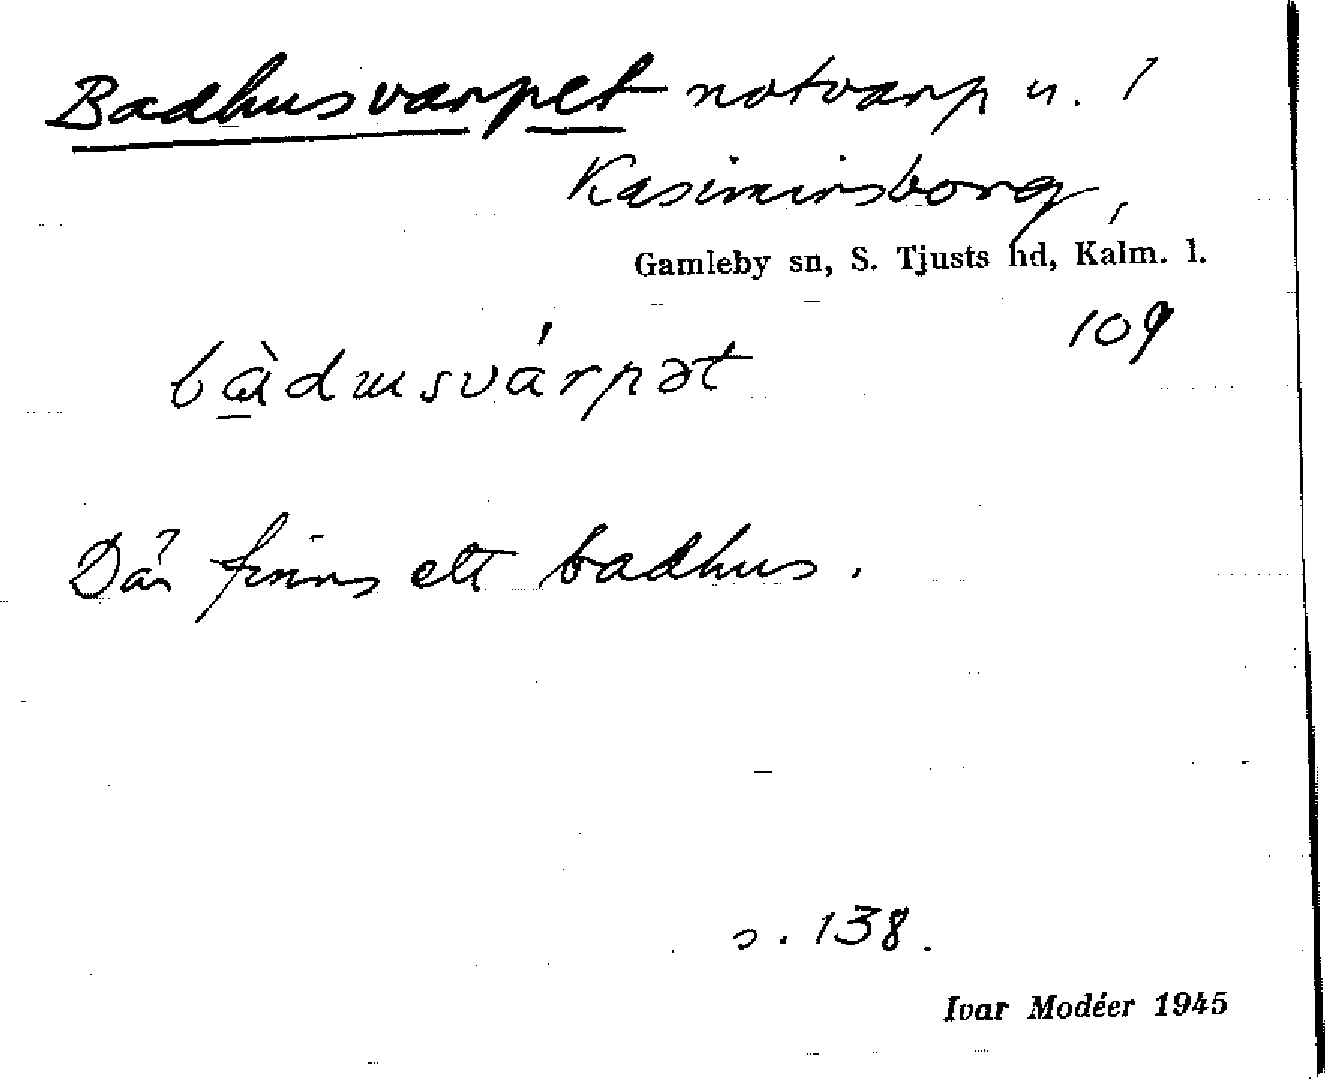 Badhusvarpet notvarp n. 1
Kasimirsborg,
Gamleby sn, S. Tjusts hd, Kalm. l.
109
bàdɯsvárpət
Där finns ett badhus.
s. 138.
Ivar Modéer 1945